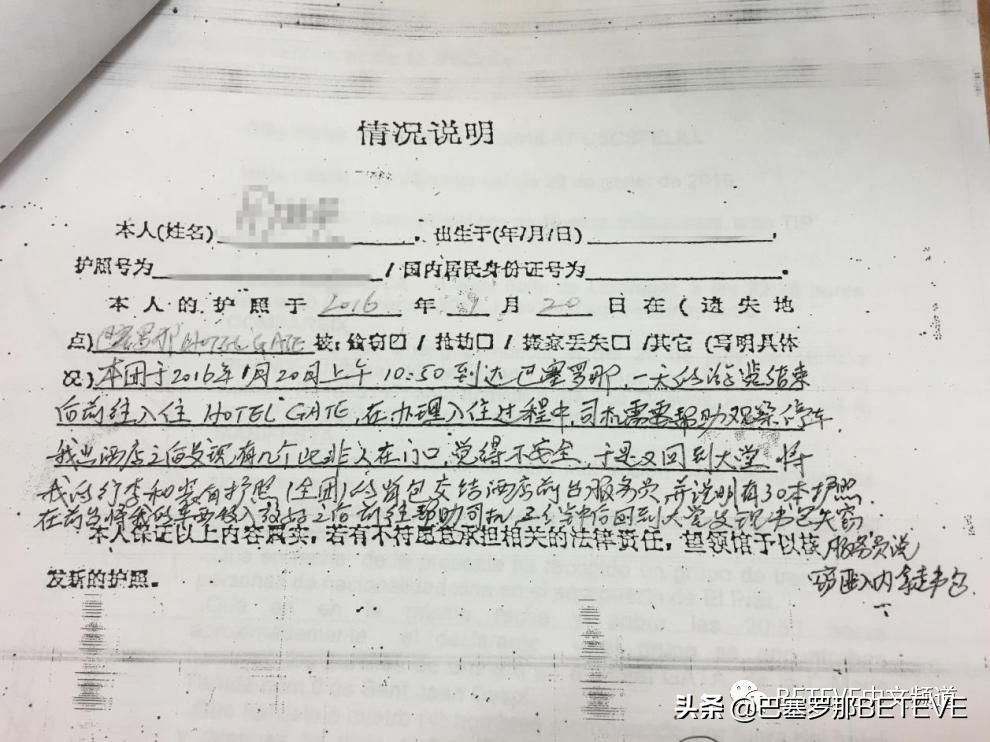 情况说明
本人(姓名) 。出生于(年/月/日) ,
护照号为 / 国内居民身份证号为 。
本人的护照于 2016 年 月 20 日在(遗失地
点)巴塞罗那HOTEL GATE 被:偷窃☑ / 抢劫□ / 丢失□ /其它 (写明具体
况)本团于2016年1月20日上午10:50到达巴塞罗那,一天的游览结束
后前往入住 HOTEL GATE,在办理入住过程中,司机需要帮助观察停车,
我出酒店之后发现有几个 在门口,觉得不安全,于是又回到大堂 将
我的行李和装有护照(全团)的背包交给酒店前台服务员,并说明有30本护照.
在前台将我的东西放入 之后前往帮助司机 五分钟后回到大堂发现书包失窃
本人保证以上内容属实,若有不符愿意承担相关的法律责任,望领馆予以核 服务员说
发新的护照。
拿走书包.
BETEVE中文频道
头条 @巴塞罗那BETEVE